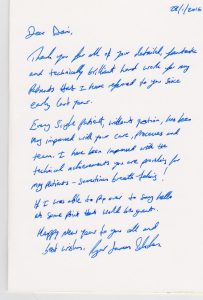 28/1/2016
Dear Dani,
Thank you for all of your detailed, fantastic
and technically brilliant hard work for my
patients that I have referred to you since
early last year.
Every single patient, without question, has been
impressed with your care, processes and
team. I have been impressed with the
technical achievements you are providing for
my patients - sometimes breath-taking!
If I was able to pop over to say hello
at some point that would be great.
Happy New year to you all and
best wishes,